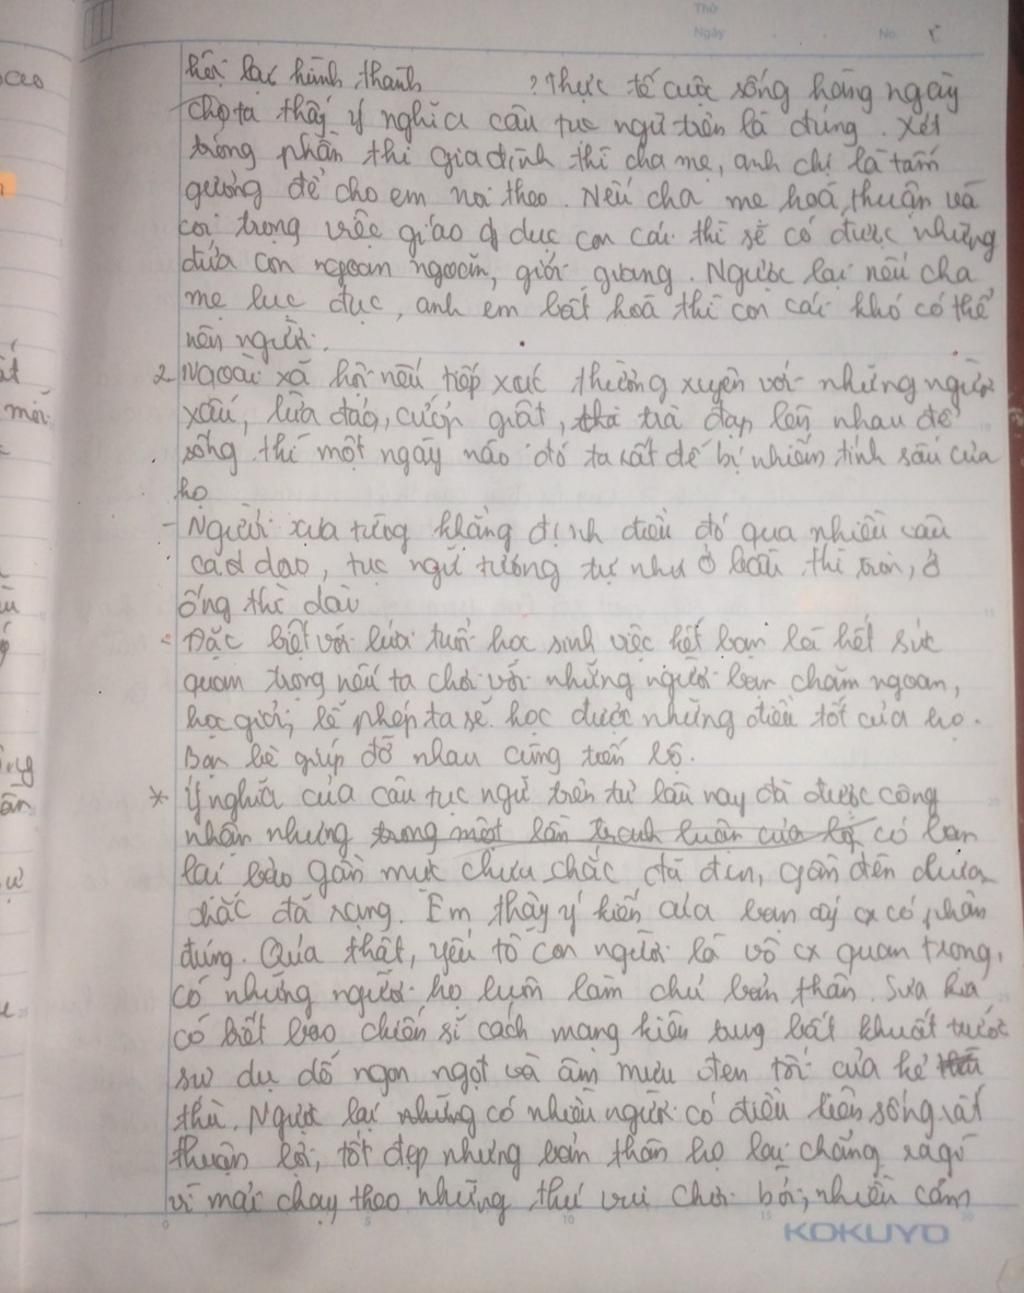 Thứ
Ngày No.
hội lại hình thành ? Thực tế cuộc sống hàng ngày
cho ta thấy ý nghĩa câu tục ngữ trên là đúng. Xét
trong phần thì gia đình thì cha mẹ, anh chị là tấm
gương để cho em noi theo. Nếu cha mẹ hoà thuận và
coi trọng việc giáo dục con cái thì sẽ có được những
đứa con ngoan ngoãn, giỏi giang. Ngược lại nếu cha
mẹ lục đục, anh em bất hoà thì con cái khó có thể
nên người.
2. Ngoài xã hội nếu tiếp xúc thường xuyên với những người
xấu, lừa đảo, cướp giật, trà đạp lên nhau để
sống thì một ngày nào đó ta rất dể bị nhiễm tính sấu của
họ
- Người xưa từng khẳng định điều đó qua nhiều câu
ca dao, tục ngữ tương tự như ở bầu thì tròn, ở
ống thì dài
- Đặc biệt với lứa tuổi học sinh việc kết bạn là hết sức
quan trọng nếu ta chơi với những người bạn chăm ngoan,
học giỏi, lễ phép ta sẽ học được những điều tốt của họ.
Bạn bè giúp đỡ nhau cùng tiến bộ.
* Ý nghĩa của câu tục ngữ trên từ lâu nay đã được công
nhận nhưng trong một lần tranh luận của lớp có bạn
lại bảo gần mực chưa chắc đã đen, gần đèn chưa
chắc đã rạng. Em thấy ý kiến của bạn ấy cx có phần
đúng. Qủa thật, yếu tố con người là vô cx quan trọng,
có những người họ luôn làm chủ bản thân. Sưa kia
có biết bao chiến sĩ cách mạng kiên trung bất khuất trước
sự dụ dỗ ngon ngọt và âm mưu đen tối của kẻ
thù. Ngược lại những có nhiều người có điều kiện sống rất
thuận lợi, tốt đẹp nhưng bản thân họ lại chẳng ra gì
vì mải chạy theo những thú vui chơi bời, nhiều cám
0 5 10 15 20
KOKUYO